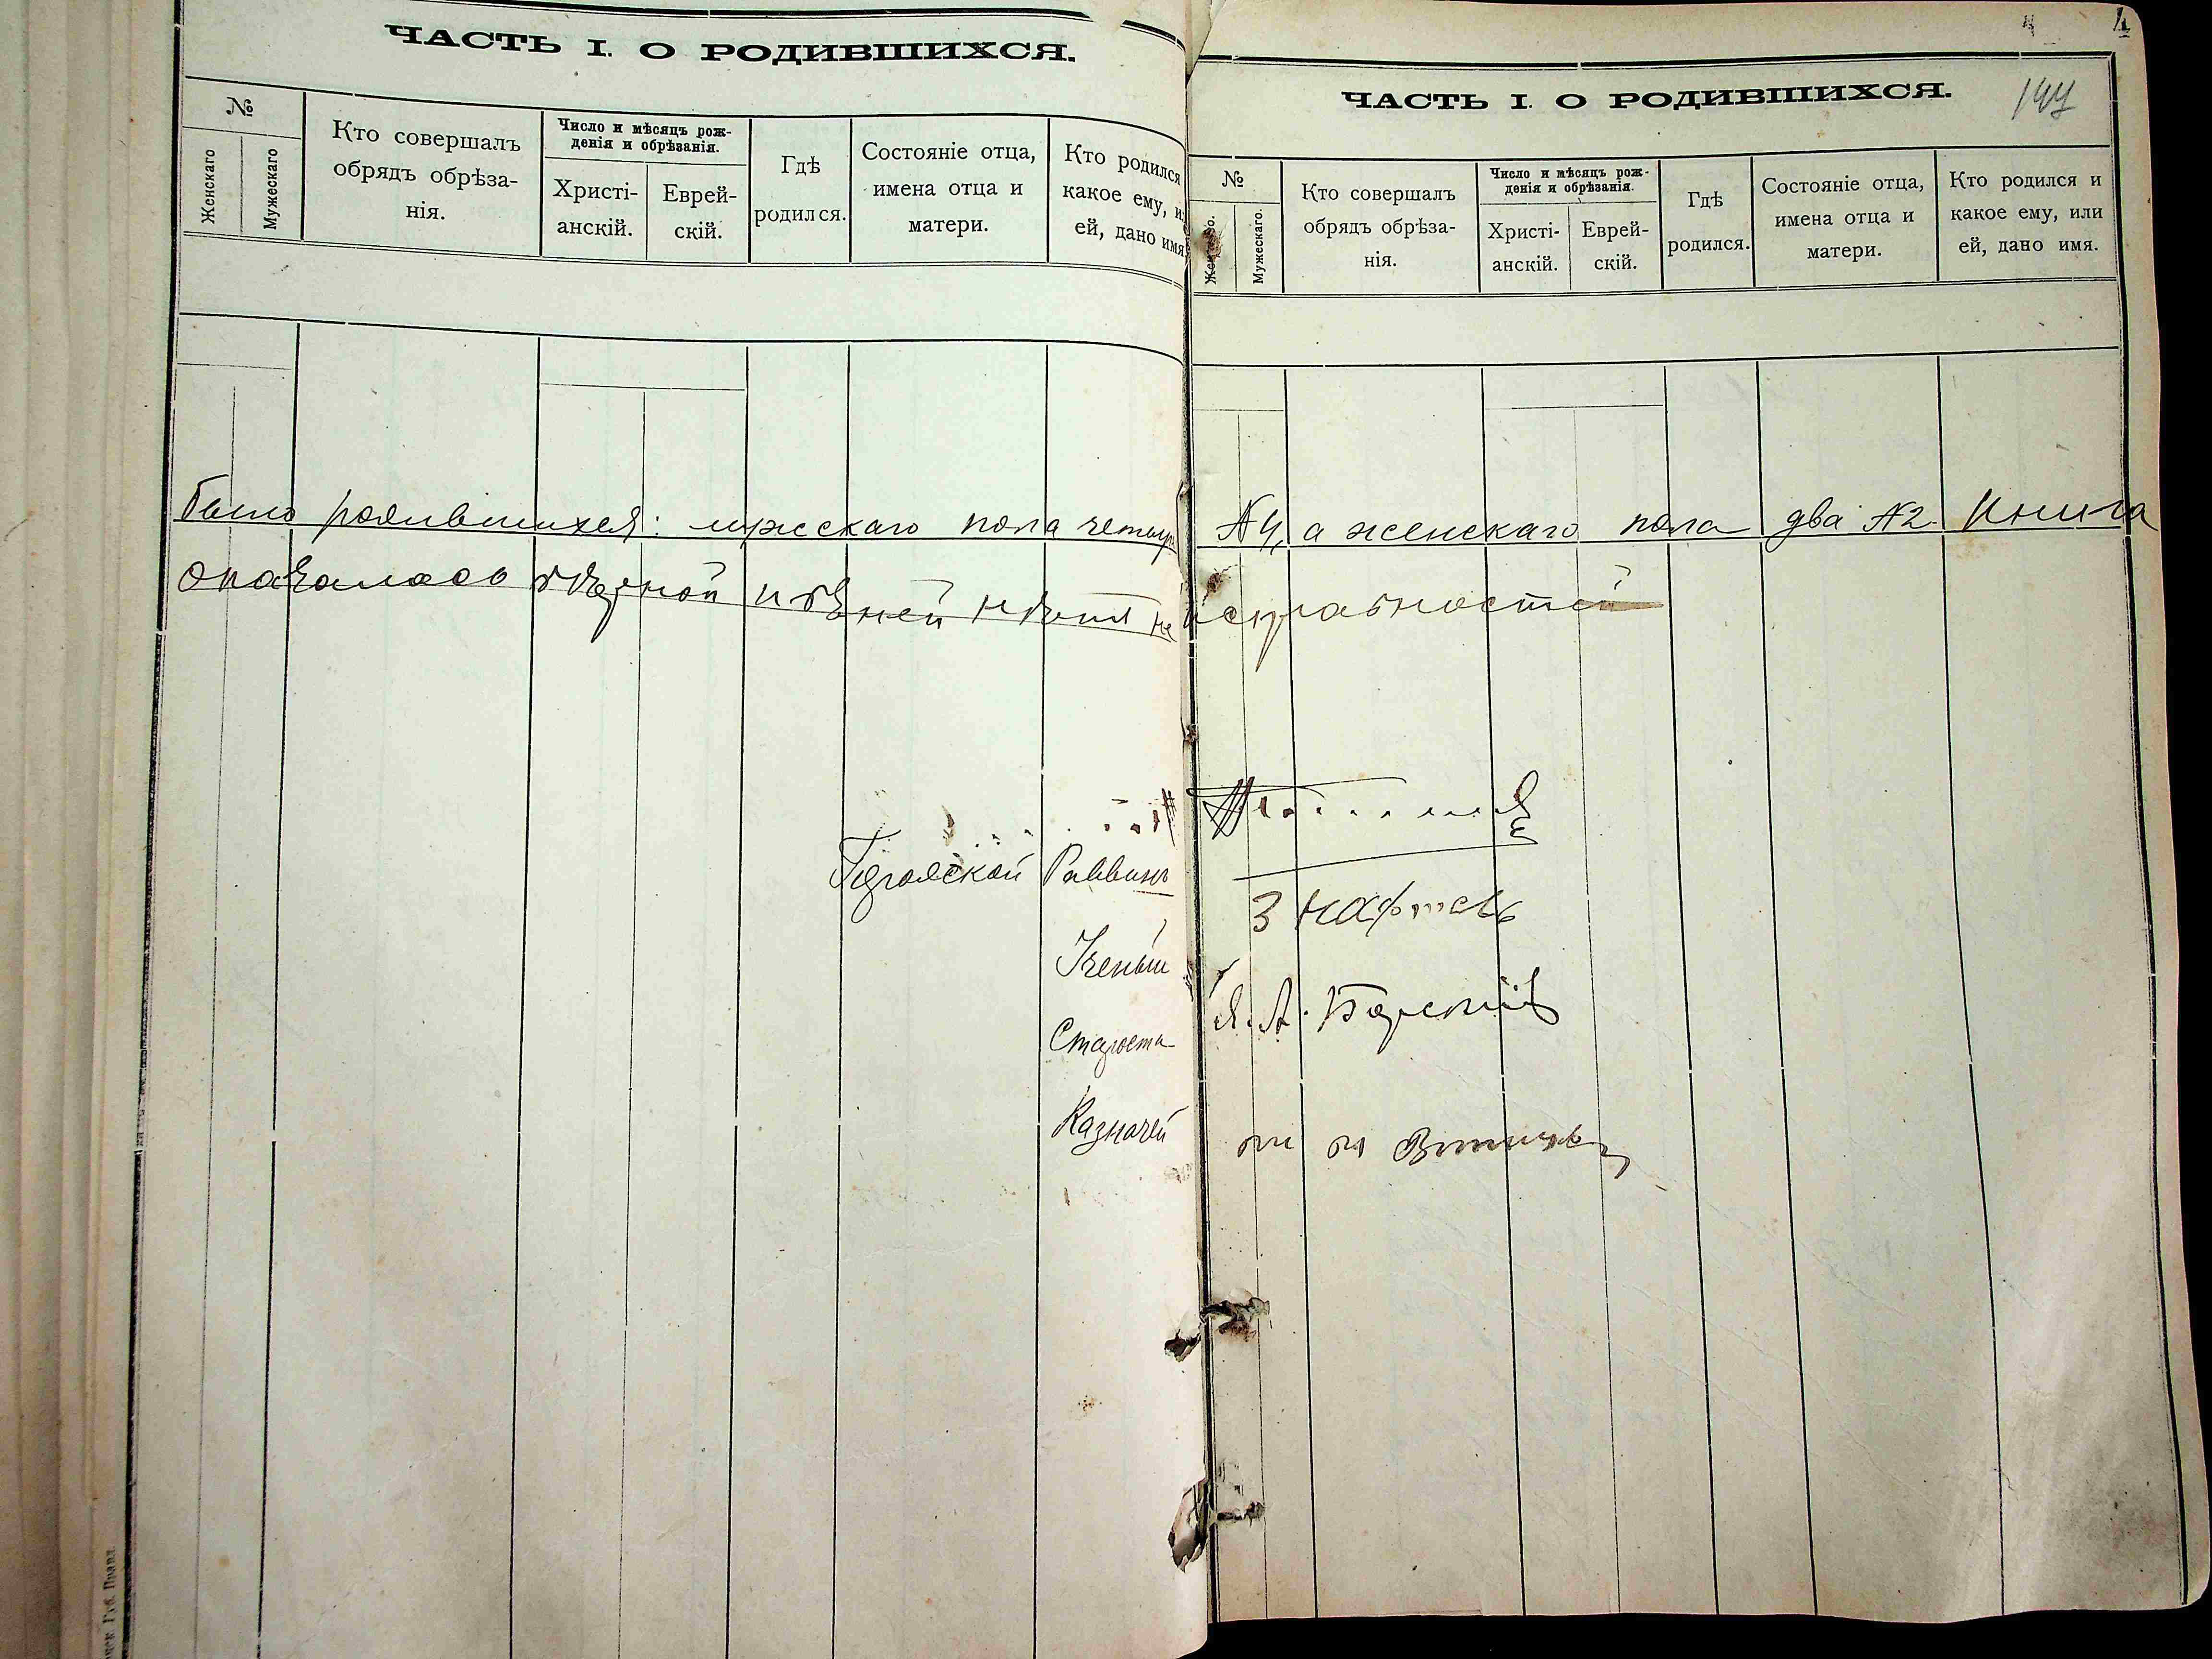 ЧАСТЬ I. О РОДИВШИХСЯ.
№
Женскаго
Мужескаго
Кто совершалъ
обрядъ обрѣза-
нія.
Число и мѣсяцъ рож-
денія и обрѣзанія.
Христі-
анскій.
Еврей-
скій.
Гдѣ
родился.
Состояніе отца,
имена отца и
матери.
Кто родился
какое ему, и
ей, дано имя
4
ЧАСТЬ I. О РОДИВШИХСЯ.
147
№
Мужескаго.
Кто совершалъ
обрядъ обрѣза-
нія.
Число и мѣсяцъ рож-
денія и обрѣзанія.
Христі-
анскій.
Еврей-
скій.
Гдѣ
родился.
Состояніе отца,
имена отца и
матери.
Кто родился и
какое ему, или
ей, дано имя.
было родившихся: мужскаго пола четыре №4, а женскаго пола два №2. Книга
оказалась вѣрной и въ ней нѣтъ неисправностей
Городской Раввинъ
Ученый
Староста
Я. А. Барскій
Казначей
Губ. Правл.